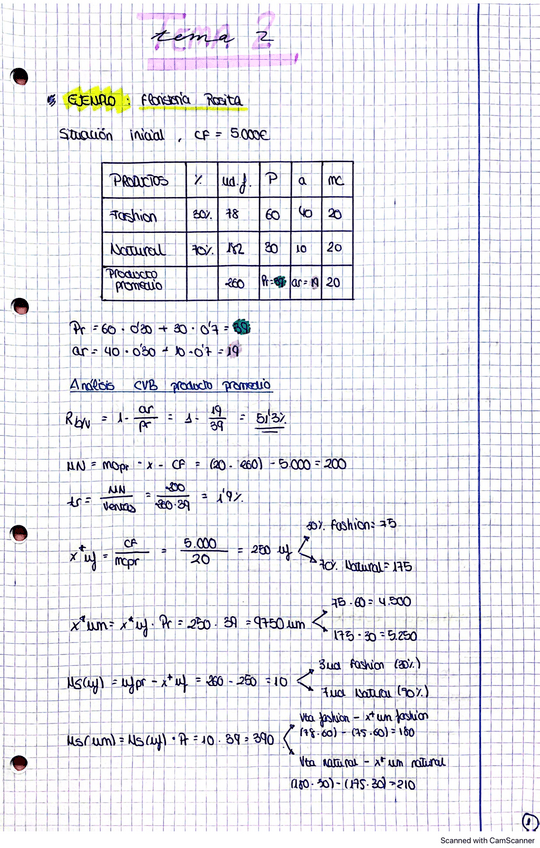 tema 2
EJEMPLO: Floristería Rosita
Situación inicial, CF = 5000€
PRODUCTOS % ud.f. P a mc
Fashion 30% 78 60 40 20
Natural 70% 182 30 10 20
Producto promedio 260 Pr=39 ar=19 20
Pr = 60 · 0'30 + 30 · 0'7 = 39
ar = 40 · 0'30 + 10 · 0'7 = 19
Análisis CVB producto promedio
Rb/v = 1 - ar/pr = 1 - 19/39 = 51'3%
MN = mcpr · x - CF = (20 · 260) - 5.000 = 200
tr = MN/Ventas = 200/260·39 = 1'9%
x* uf = CF/mcpr = 5.000/20 = 250 uf
30% Fashion = 75
70% Natural = 175
x* um = x* uf · Pr = 250 · 39 = 9750 um
75 · 60 = 4.500
175 · 30 = 5.250
Ms(uf) = uf pr - x* uf = 260 - 250 = 10
3 ud Fashion (30%)
7 ud Natural (70%)
Ms(um) = Ms(uf) · Pr = 10 · 39 = 390
Vta fashion - x* um fashion
(78·60) - (75·60) = 180
Vta natural - x* um natural
(180·30) - (175·30) = 210
1
Scanned with CamScanner